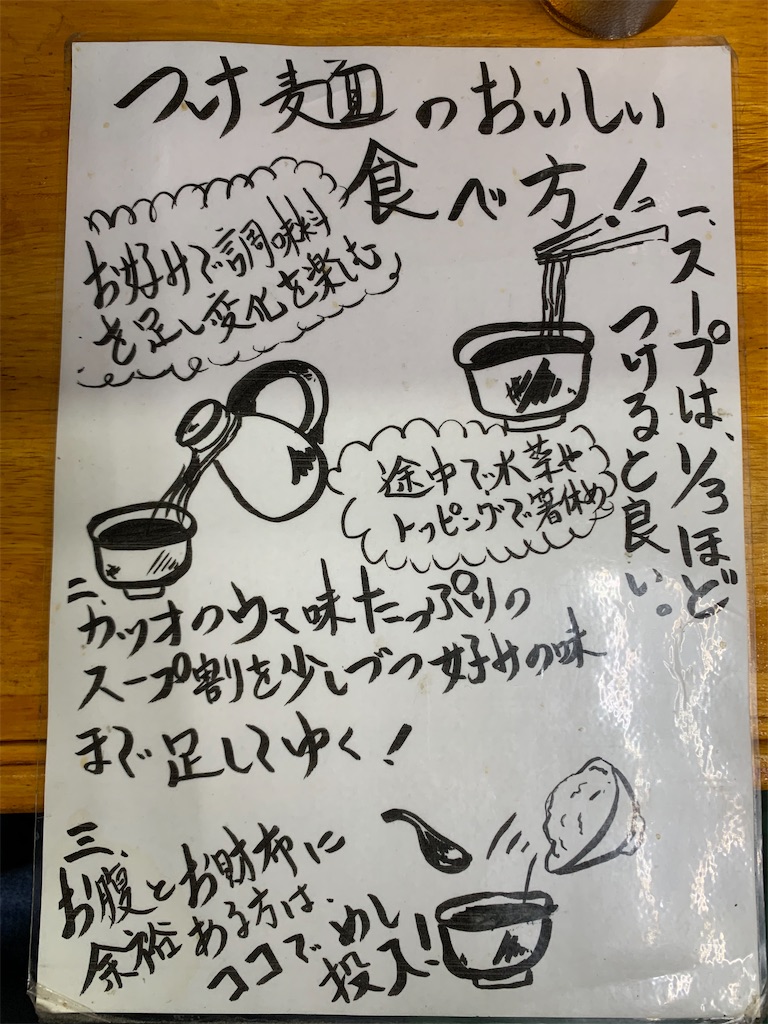 つけ麺のおいしい
食べ方！
一、スープは、1/3ほど
つけると良い。
お好みで調味料
を足し変化を楽しむ
途中で水菜や
トッピングで箸休め
二、カツオのウマ味たっぷりの
スープ割を少しづつ好みの味
まで足してゆく！
三、
お腹とお財布に
余裕ある方は、
ココでめし
投入！